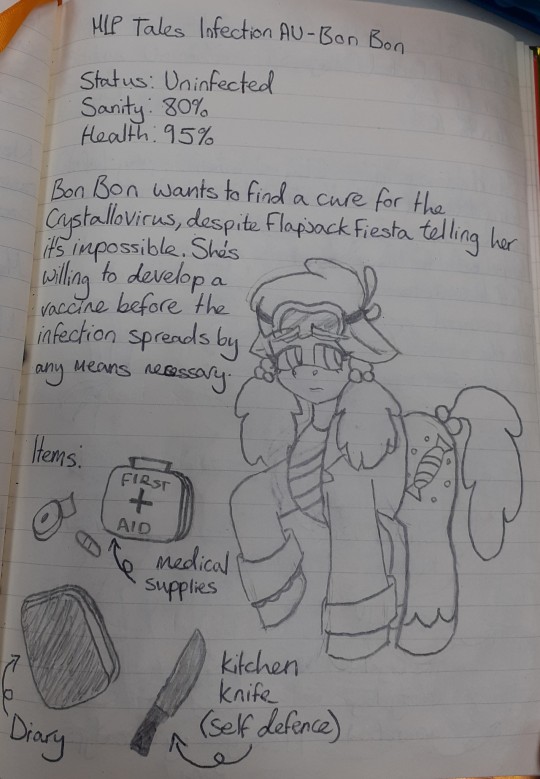 MLP Tales Infection AU-Bon Bon
Status: Uninfected
Sanity: 80%
Health: 95%
Bon Bon wants to find a cure for the
Crystallovirus, despite Flapjack Fiesta telling her
it's impossible. She's
willing to develop a
vaccine before the
infection spreads by
any means necessary.
Items:
FIRST
+
AID
medical
supplies
Diary
kitchen
knife
(self defence)